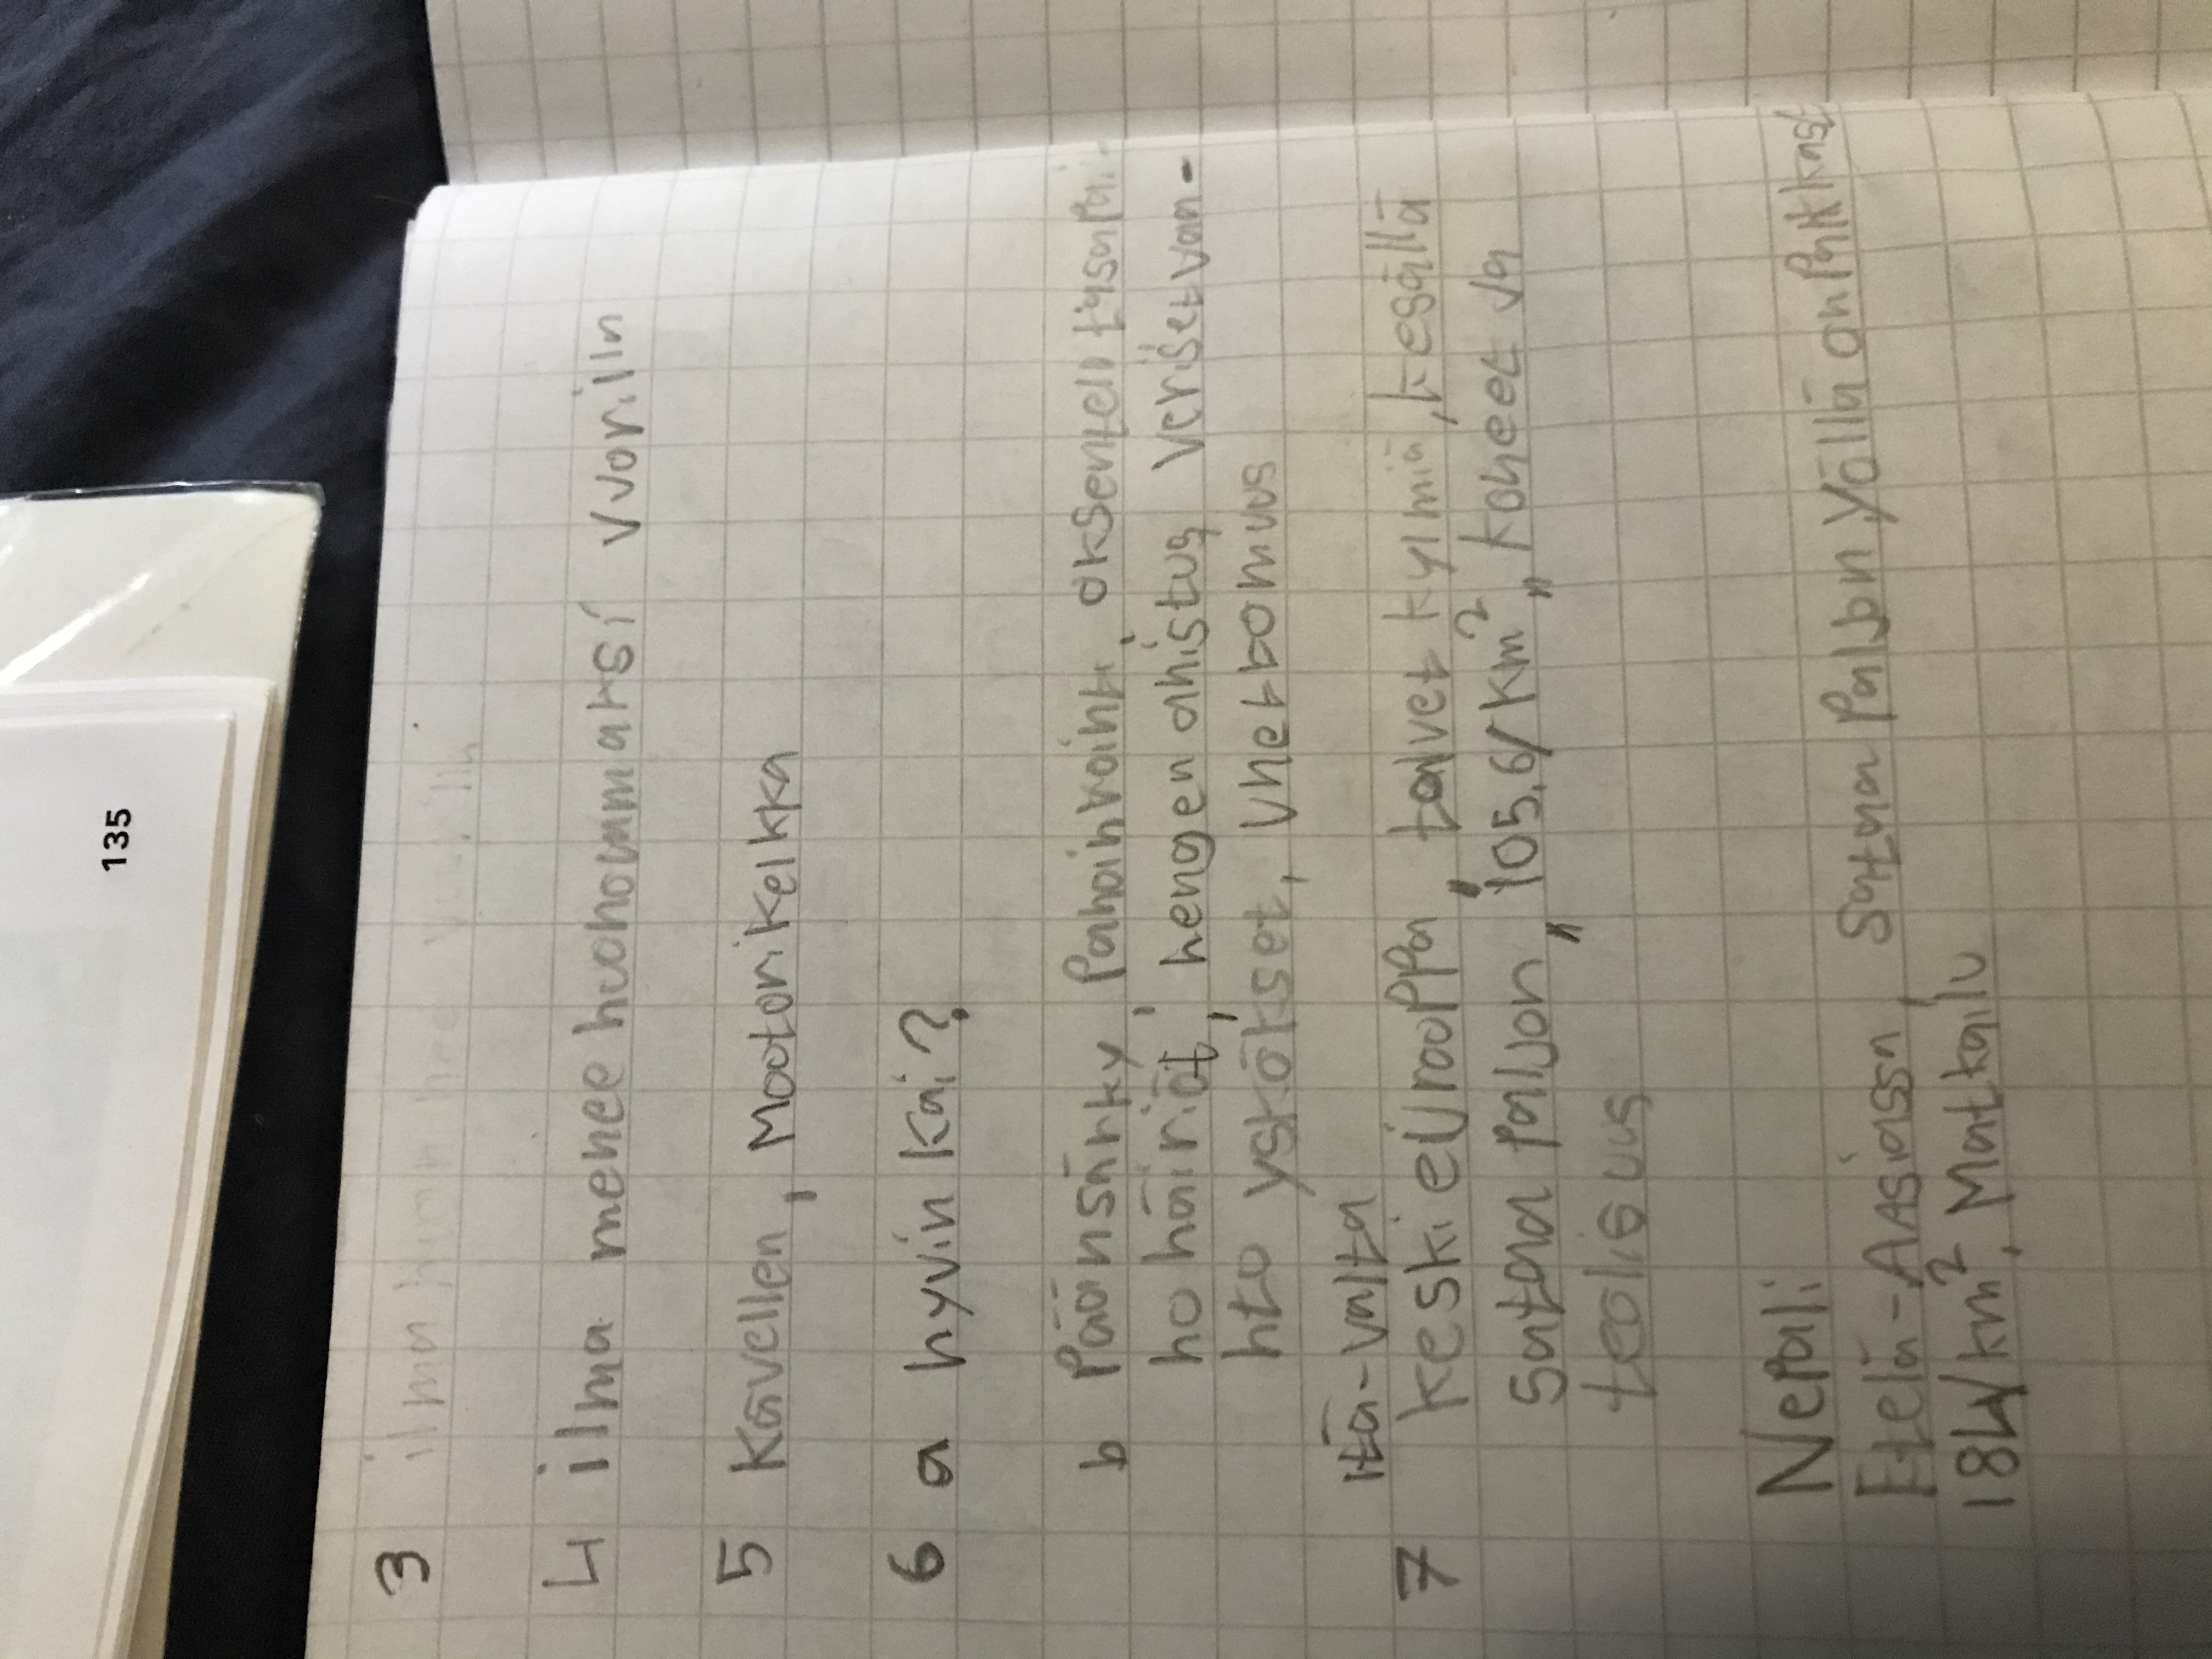 135
3
4 ilma menee huohommaksi vvorilla
5 Kävellen, Mootorikelkka
6 a hyvin kai?
b Päänsärky, Pahoinvointi, oksentelu tasapai-
no häiriöt, hengen ahistus, veriset van-
hto yskökset, Uhettomuus
itä-valta
7 keskieurooppa, talvet kylmiä, kesällä
Sataa paljon, 105,6/km², "koneet ja
teolisuus"
Nepali
Etelä-Aasiassa, Sataa Paljon Yöllä on Pakkast
184/km², Matkailu